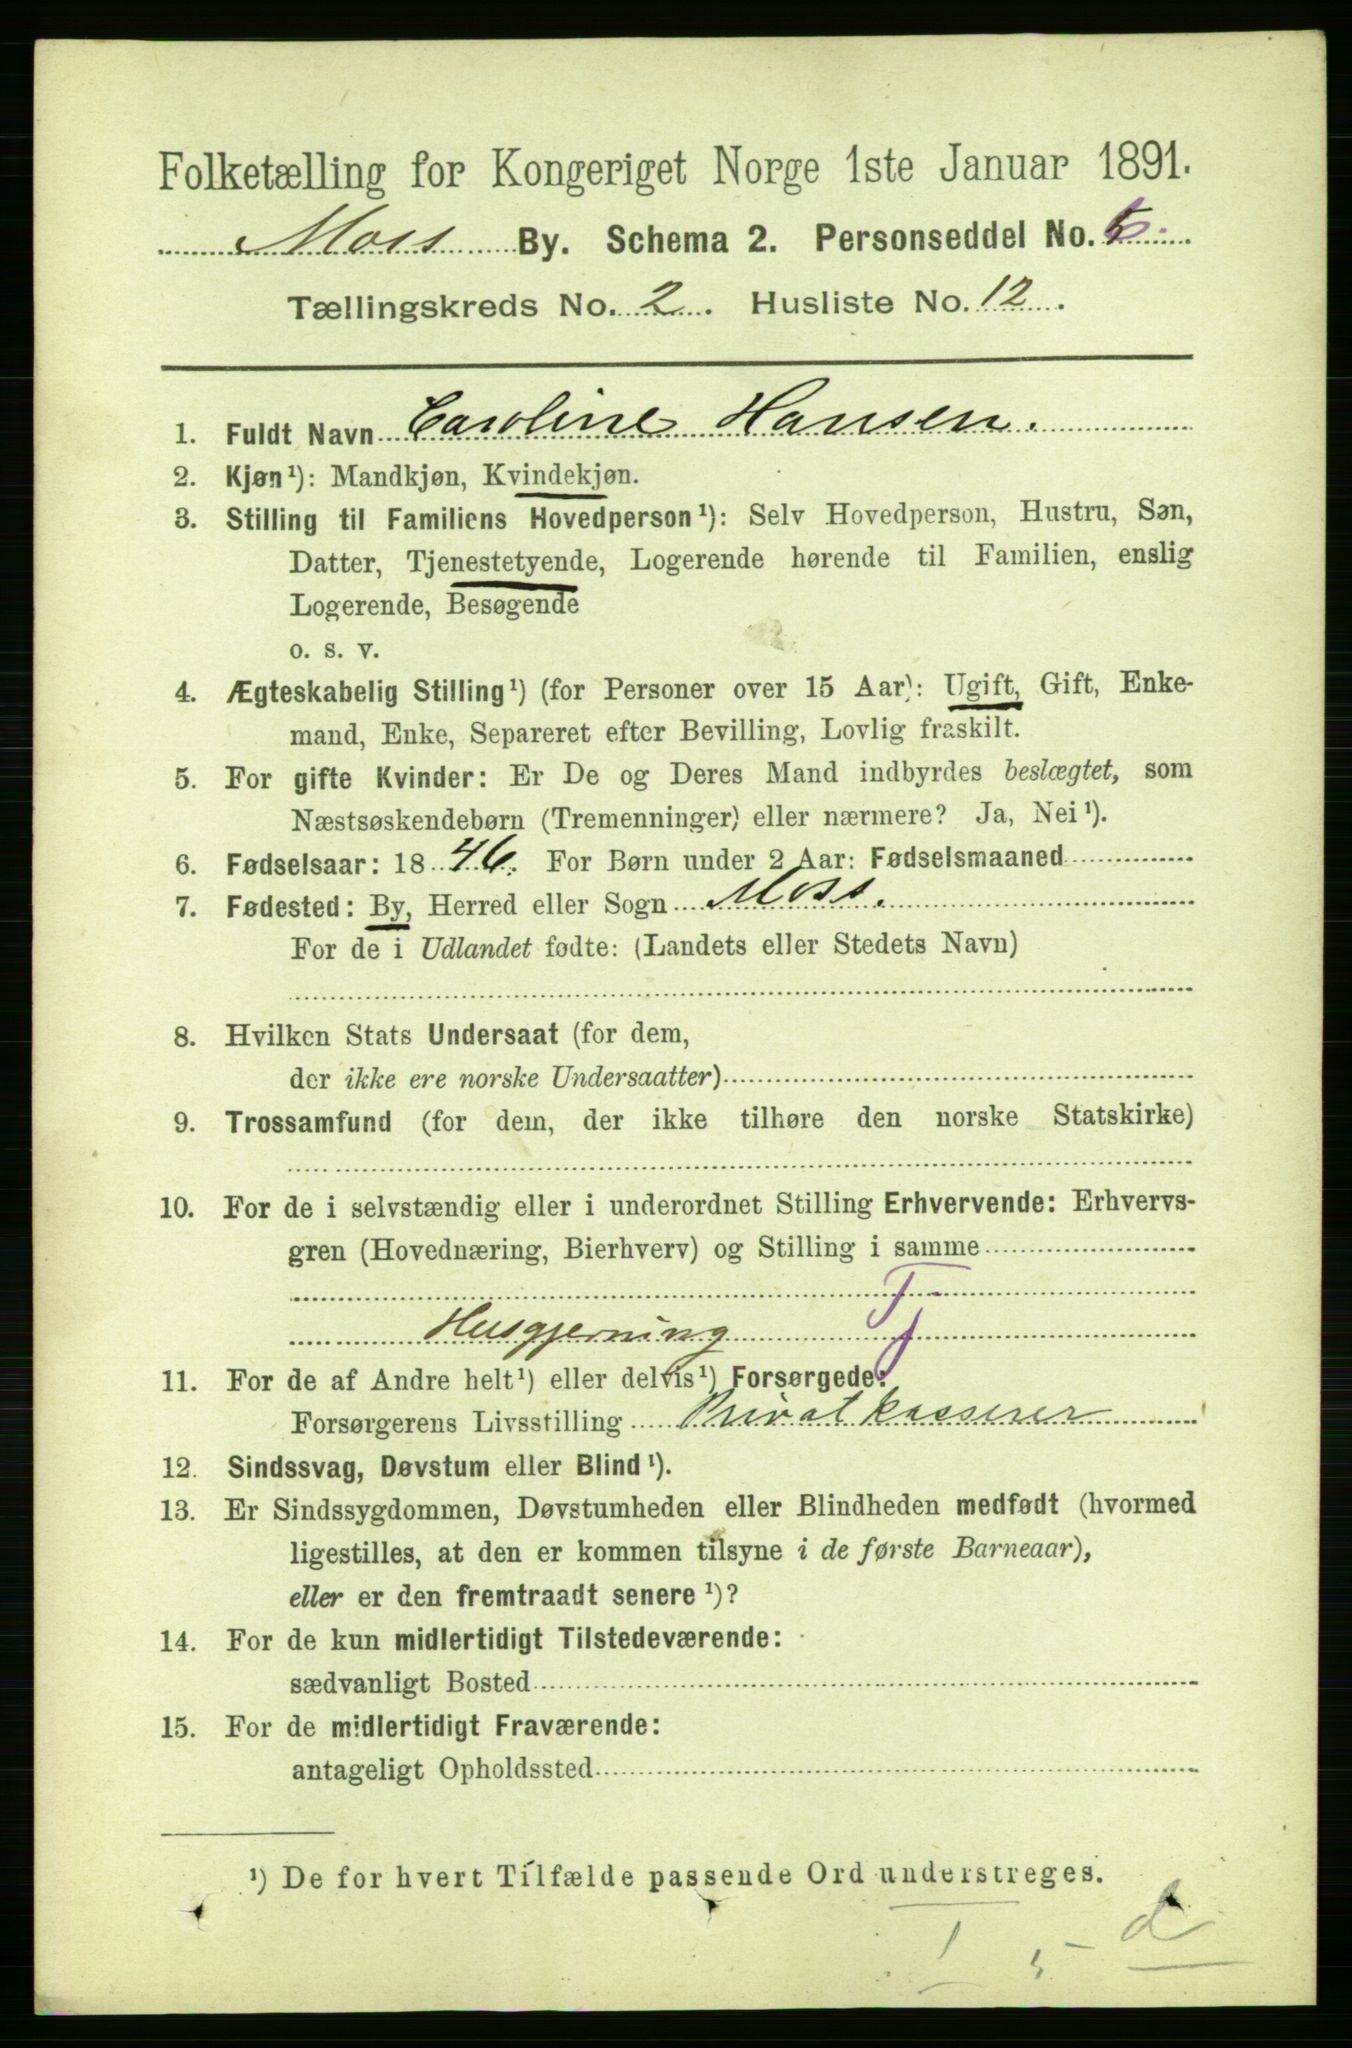 Folketælling for Kongeriget Norge 1ste Januar 1891.
Moss By. Schema 2. Personseddel No.
Tællingskreds No. 2. Husliste No. 12.
1. Fuldt Navn Caroline Hansen.
2. Kjøn¹): Mandkjøn, Kvindekjøn.
3. Stilling til Familiens Hovedperson¹): Selv Hovedperson, Hustru, Søn,
Datter, Tjenestetyende, Logerende hørende til Familien, enslig
Logerende, Besøgende
o. s. v.
4. Ægteskabelig Stilling¹) (for Personer over 15 Aar): Ugift, Gift, Enke-
mand, Enke, Separeret efter Bevilling, Lovlig fraskilt.
5. For gifte Kvinder: Er De og Deres Mand indbyrdes beslægtet, som
Næstsøskendebørn (Tremenninger) eller nærmere? Ja, Nei¹).
6. Fødselsaar: 1846. For Børn under 2 Aar: Fødselsmaaned
7. Fødested: By, Herred eller Sogn Moss.
For de i Udlandet fødte: (Landets eller Stedets Navn)
8. Hvilken Stats Undersaat (for dem,
der ikke ere norske Undersaatter)
9. Trossamfund (for dem, der ikke tilhøre den norske Statskirke)
10. For de i selvstændig eller i underordnet Stilling Erhvervende: Erhvervs-
gren (Hovednæring, Bierhverv) og Stilling i samme
Husgjerning Tj
11. For de af Andre helt¹) eller delvis¹) Forsørgede:
Forsørgerens Livsstilling Privatkasserer
12. Sindssvag, Døvstum eller Blind¹).
13. Er Sindssygdommen, Døvstumheden eller Blindheden medfødt (hvormed
ligestilles, at den er kommen tilsyne i de første Barneaar),
eller er den fremtraadt senere¹)?
14. For de kun midlertidigt Tilstedeværende:
sædvanligt Bosted
15. For de midlertidigt Fraværende:
antageligt Opholdssted
¹) De for hvert Tilfælde passende Ord understreges.
I 5 d